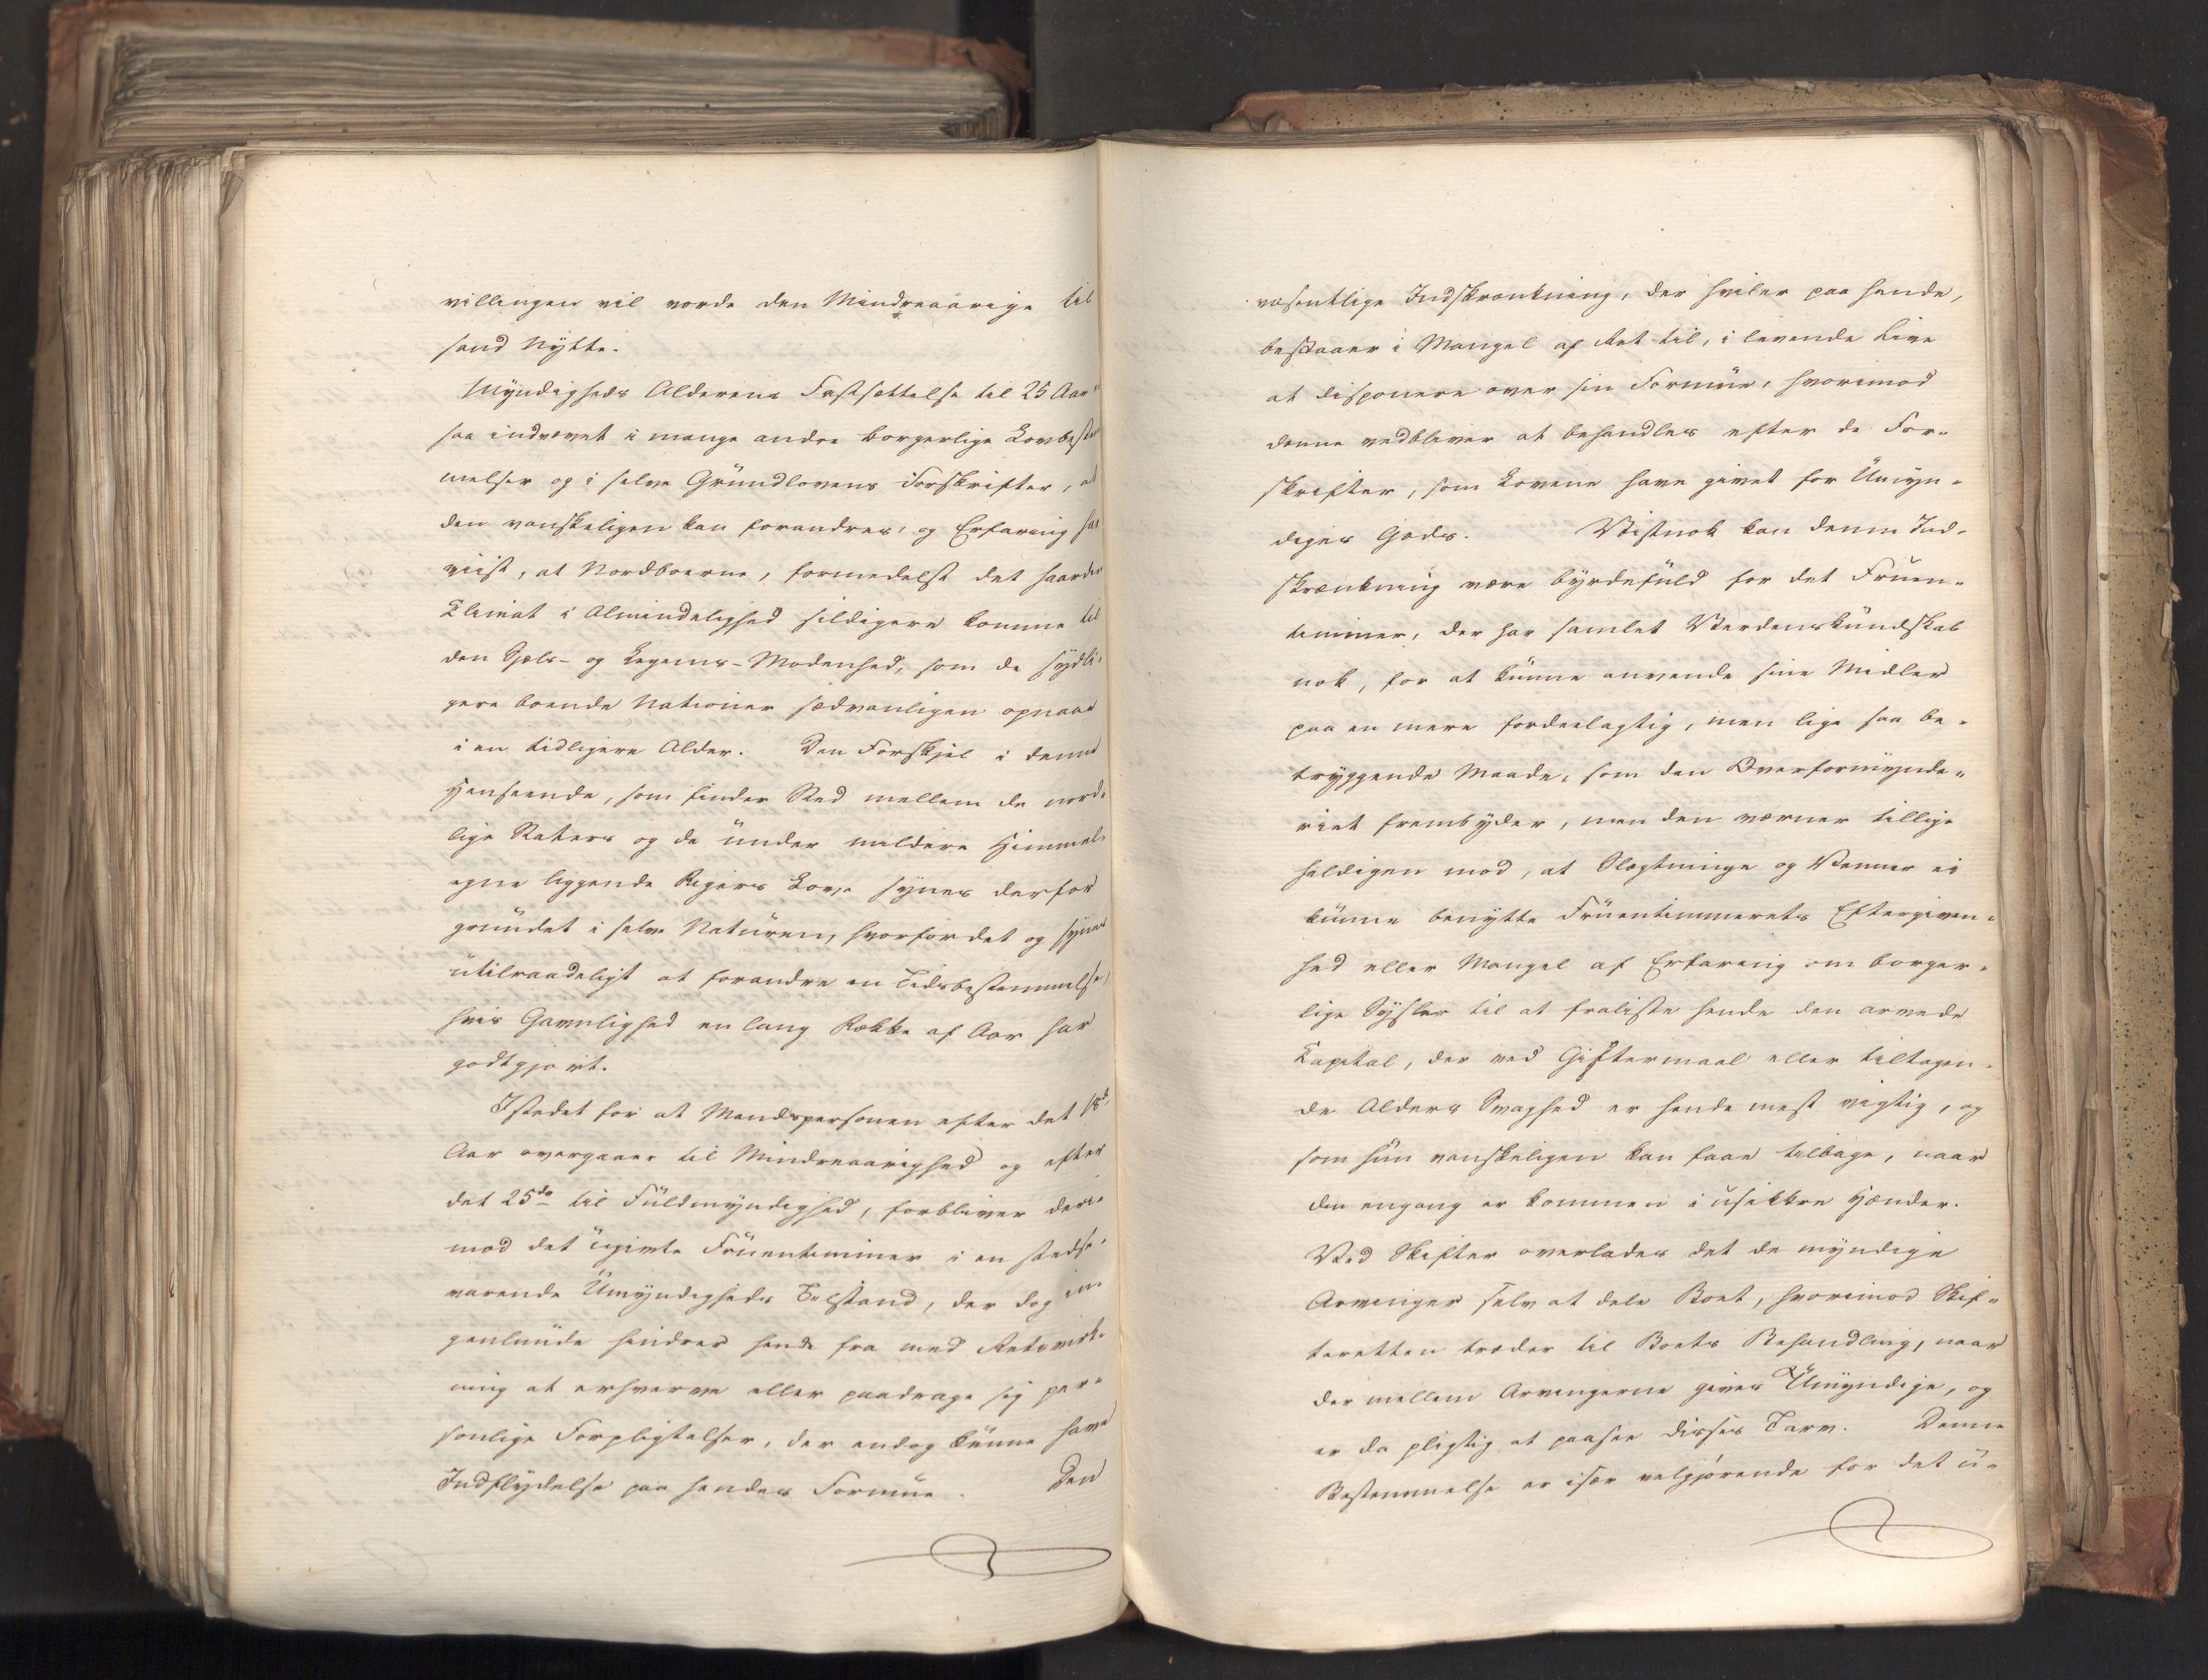 villingen vil vorde den Mindreaarige til
sand Nytte.
Myndigheds Alderens Fastsættelse til 25 Aar
saa indvævet i mange andre borgerlige Lovbestem
melser og i selve Grundlovens Forskrifter, at
den vanskeligen kan forandres, og Erfaring har
viist, at Nordboerne, formedelst det haarde
Climat i Almindelighed sildigere komme til
den Sjels- og Legems-Modenhed, som de sydli-
gere boende Nationer sædvanligen opnaae
i en tidligere Alder. Den Forskjel i denne
Henseende, som finder Sted mellem de nord-
lige Staters og de under mildere Himmel-
egne liggende Rigers Love synes derfor
grundet i selve Naturen, hvorfor det og synes
utilraadeligt at forandre en Tidsbestemmelse,
hvis Gavnlighed en lang Række af Aar har
godtgjort.
Istedet for at Mandspersonen efter det 18de
Aar overgaaer til Mindreaarighed og efter
det 25de til Fuldmyndighed, forbliver der-
mod det ugivte Fruentimmer i en stedse-
varende Umyndigheds Tilstand, der dog in
genlunde hindrer hende fra med Retsvirk-
ning at erhverve eller paadrage sig per-
sonlige Forpligtelser, der endog kunne have
Indflydelse paa hendes Formue. Den
væsentlige Indskrænkning, der hviler paa hende,
bestaaer i Mangel af Ret til, i levende Live
at disponere over sin Formue, hvorimod
denne vedbliver at behandles efter de For-
skrifter, som Lovene have givet for Umyn-
diges Gods. Vistnok kan denne Ind-
skrænkning være byrdefuld for det Fruen-
timmer, der har samlet Verdenskundskab
nok, for at kunne anvende sine Midler
paa en mere fordeelagtig, men lige saa be-
tryggende Maade, som den Overformynde-
riet frembyder, men den værner tillige
heldigen mod, at Slægtninge og Venner ei
kunne benytte Fruentimmerets Eftergiven-
hed eller Mangel af Erfaring om borger-
lige Sysler til at fraliste hende den arvede
Capital, der ved Giftermaal eller tiltagen-
de Alders Svaghed er hende mest vigtig, og
som hun vanskeligen kan faae tilbage, naar
den engang er kommen i usikkre Hænder.
Ved Skifter overlades det de myndige
Arvinger selv at dele Boet, hvorimod Skif-
teretten træder til Boets Behandling, naar
der mellem Arvingerne gives Umyndige, og
er da pligtig at paasee disses Tarv. Denne
Bestemmelse er især velgjørende for det u-